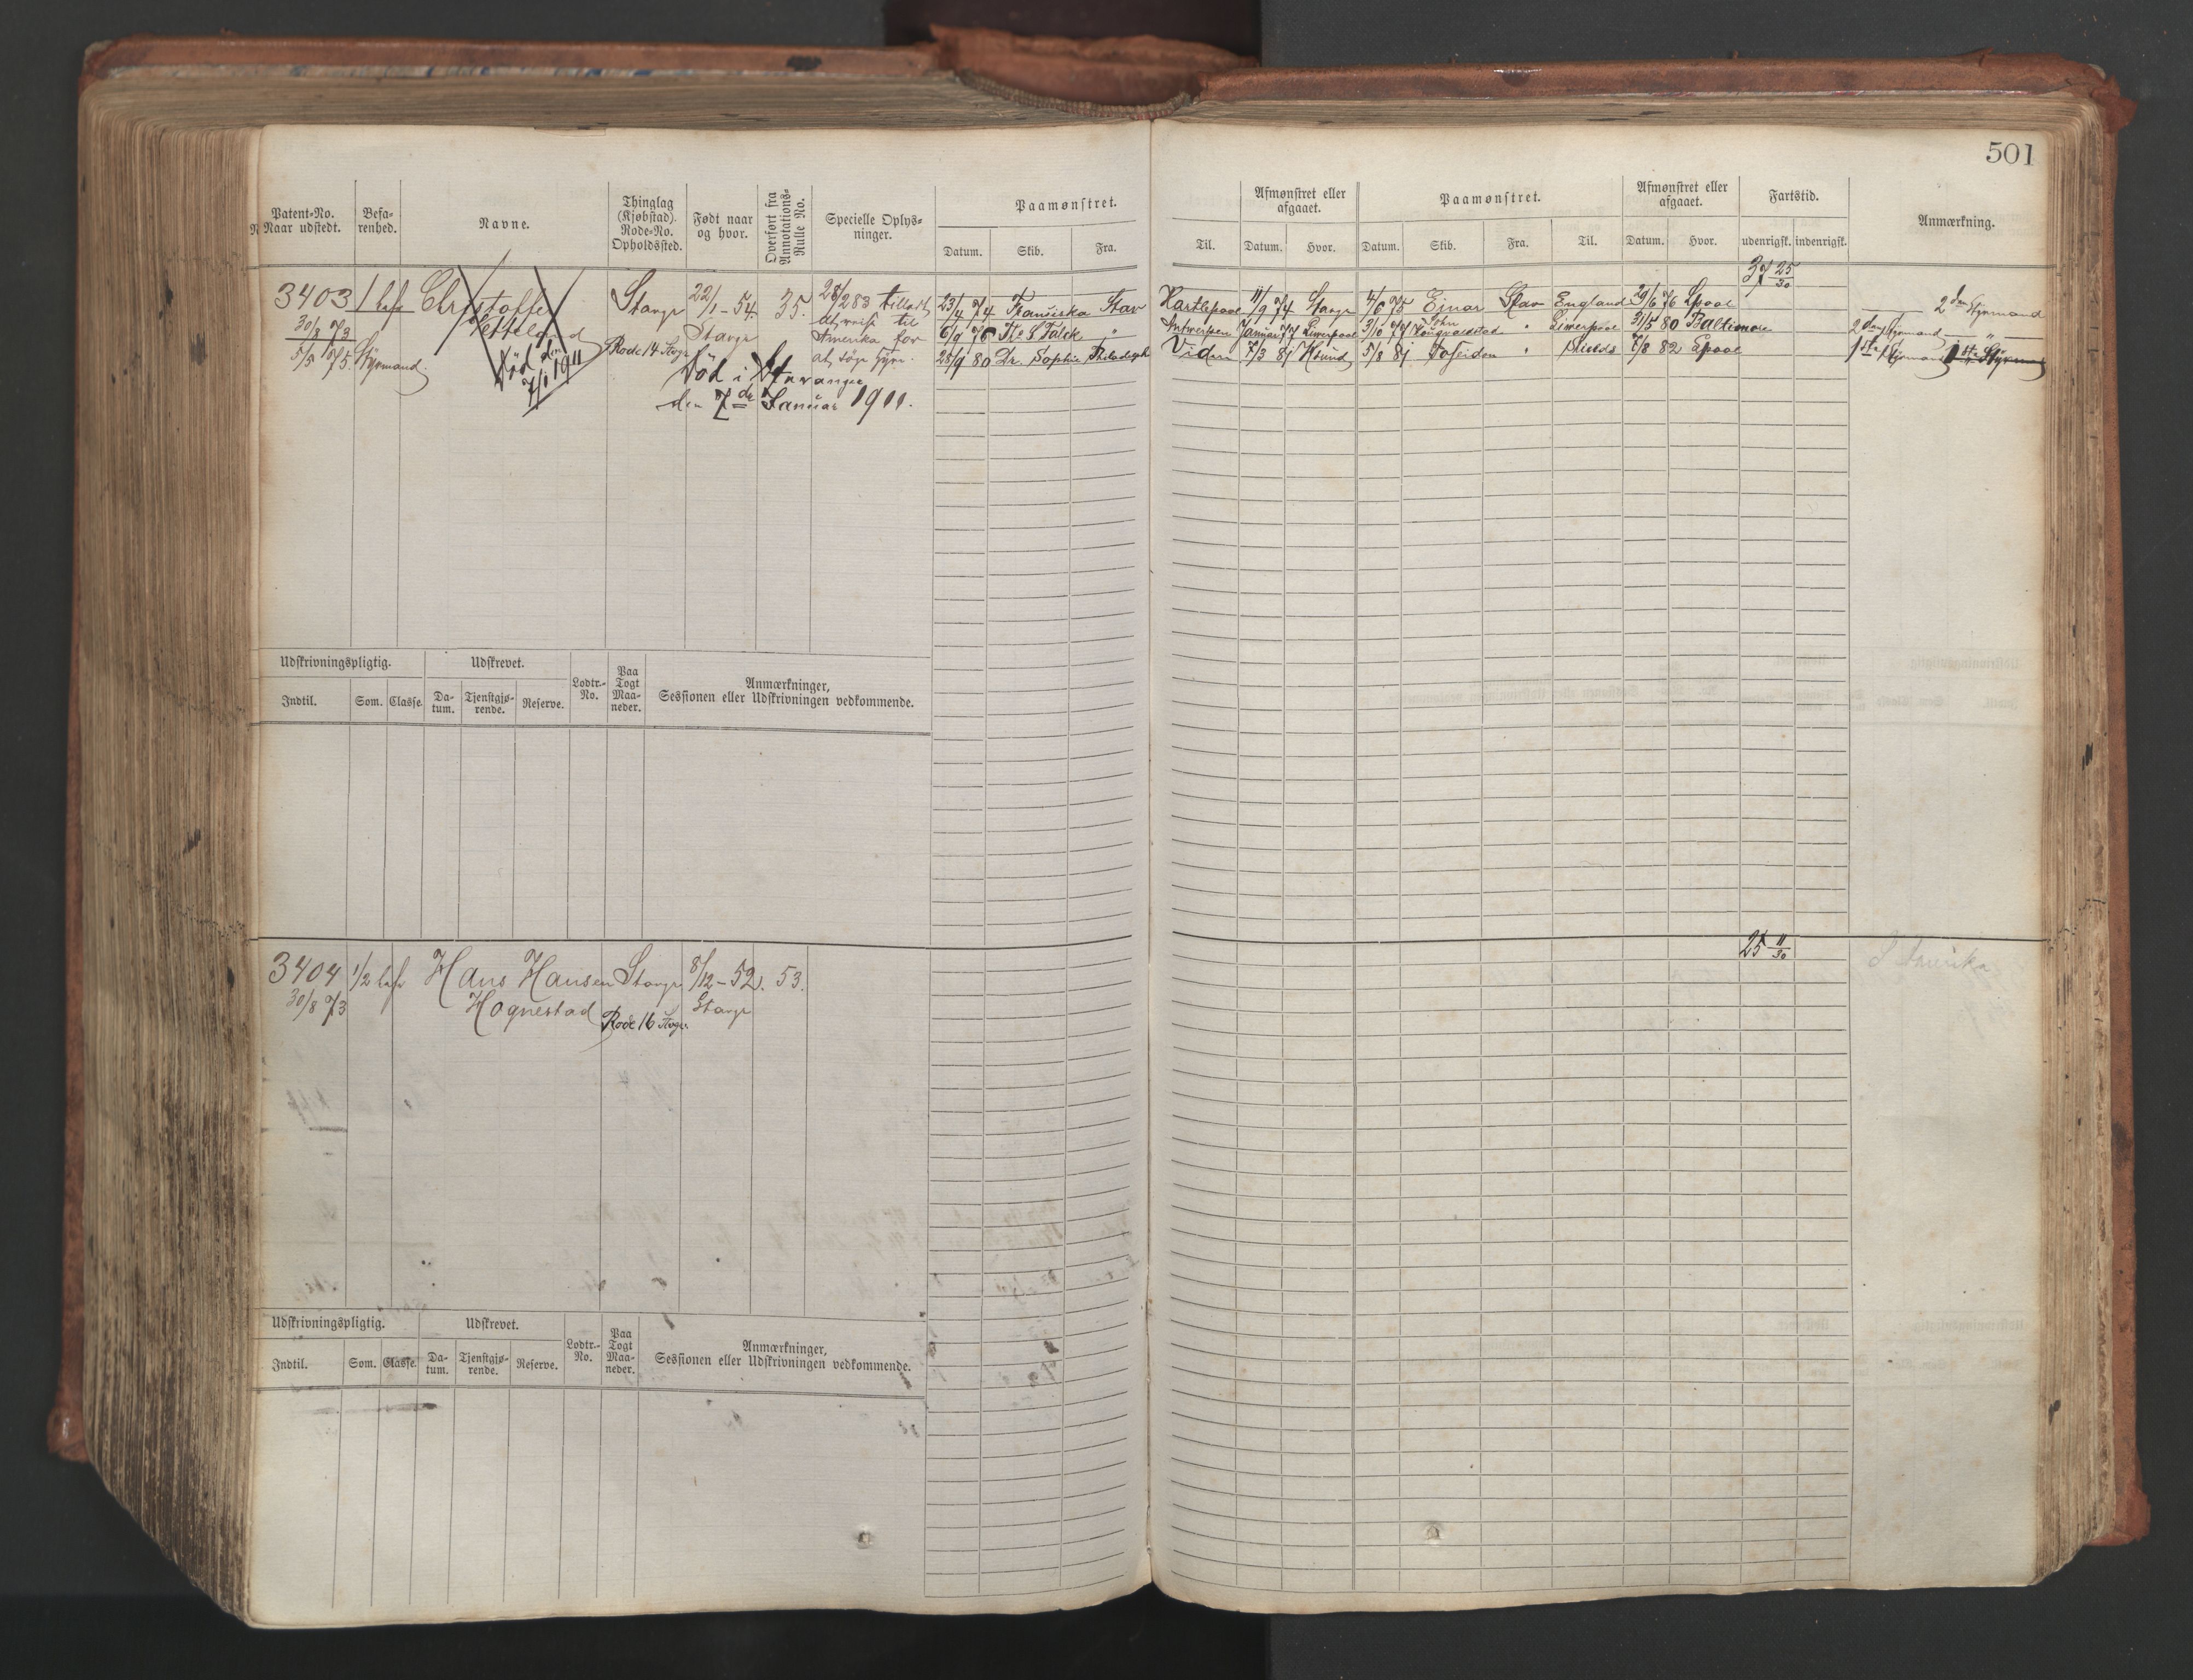 501
Patent-No. Naar udstedt.
Befa-renhed.
Navne.
Thinglag (Kjøbstad). Rode-No. Opholdssted.
Født naar og hvor.
Overført fra Annotations-Rulle No.
Specielle Oplys-ninger.
Paamønstret.
Datum. Skib. Fra. Til.
Afmønstret eller afgaaet.
Datum. Hvor.
Paamønstret.
Datum. Skib. Fra. Til.
Afmønstret eller afgaaet.
Datum. Hvor.
Fartstid.
udenrigsk. indenrigsk.
Anmærkning.
37 25/30
3403 1 befa Christoffer Stavgr 22/1-54. 35. 28/2 83 tilladt
30/8 73 Tetteland Stavgr at reise til
5/5 75. Styrmand. Rode 14 Stvgr Amerika for
at søge Hyre.
Død den 7/1 1911
Død i Stavanger
den 7de Januar 1911.
23/4 74 Franciska Stav Hartlepool 11/9 74 Stavgr 4/6 75 Einar Stav England 29/6 76 Lpool 2den Styrmand
6/9 76 Th. S Falck " Antwerpen Januar 77 Liverpool 3/10 77 John " Liverpool 31/5 80 Baltimore 2den Styrmand "
28/9 80 Dr. Sophie Philadelph 7/3 81 5/8 81 Poseidon " Shields 7/8 82 Lpool 1ste Styrmand 1ste Styrmand
Udskrivningspligtig. Udskrevet. Lodtr.-No. Paa Togt Maa-neder. Anmærkninger,
Sessionen eller Udskrivningen vedkommende.
Indtil. Som. Classe. Da-tum. Tjenstgjø-rende. Reserve.
25 11/30
3404 1/2 befr Hans Hansen Stavgr 8/12-52. 53. Amerika
30/8 73 Hognestad Rode 16 Stvgr. Stavgr
Udskrivningspligtig. Udskrevet. Lodtr.-No. Paa Togt Maa-neder. Anmærkninger,
Sessionen eller Udskrivningen vedkommende.
Indtil. Som. Classe. Da-tum. Tjenstgjø-rende. Reserve.